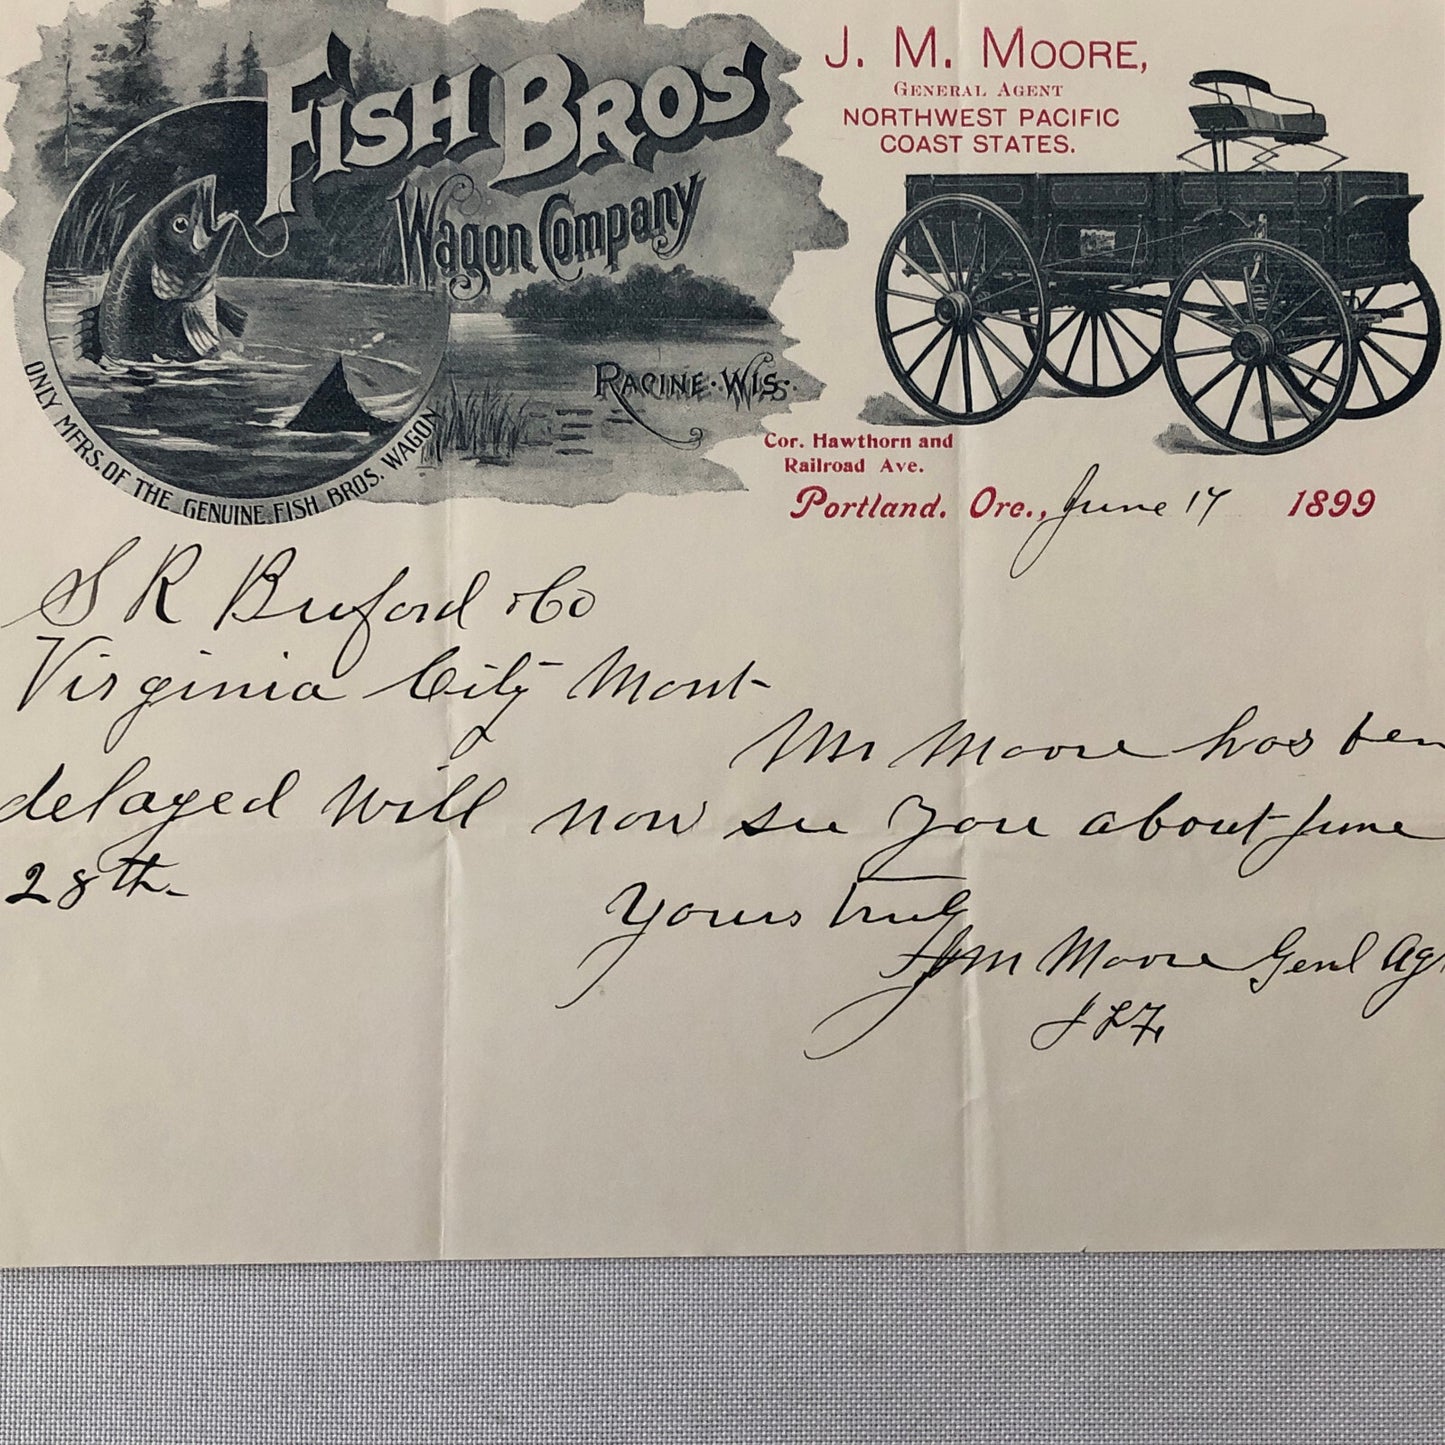 FISH BROS
Wagon Company
RACINE. WIS.
ONLY MFRS. OF THE GENUINE FISH BROS. WAGON
J. M. MOORE,
GENERAL AGENT
NORTHWEST PACIFIC
COAST STATES.
Cor. Hawthorn and
Railroad Ave.
Portland. Ore., June 17 1899
S R Buford & Co
Virginia City Mont
Mr Moore has ben
delayed will now see you about June
28th
Yours truly
J M Moore Genl Agt
J L F